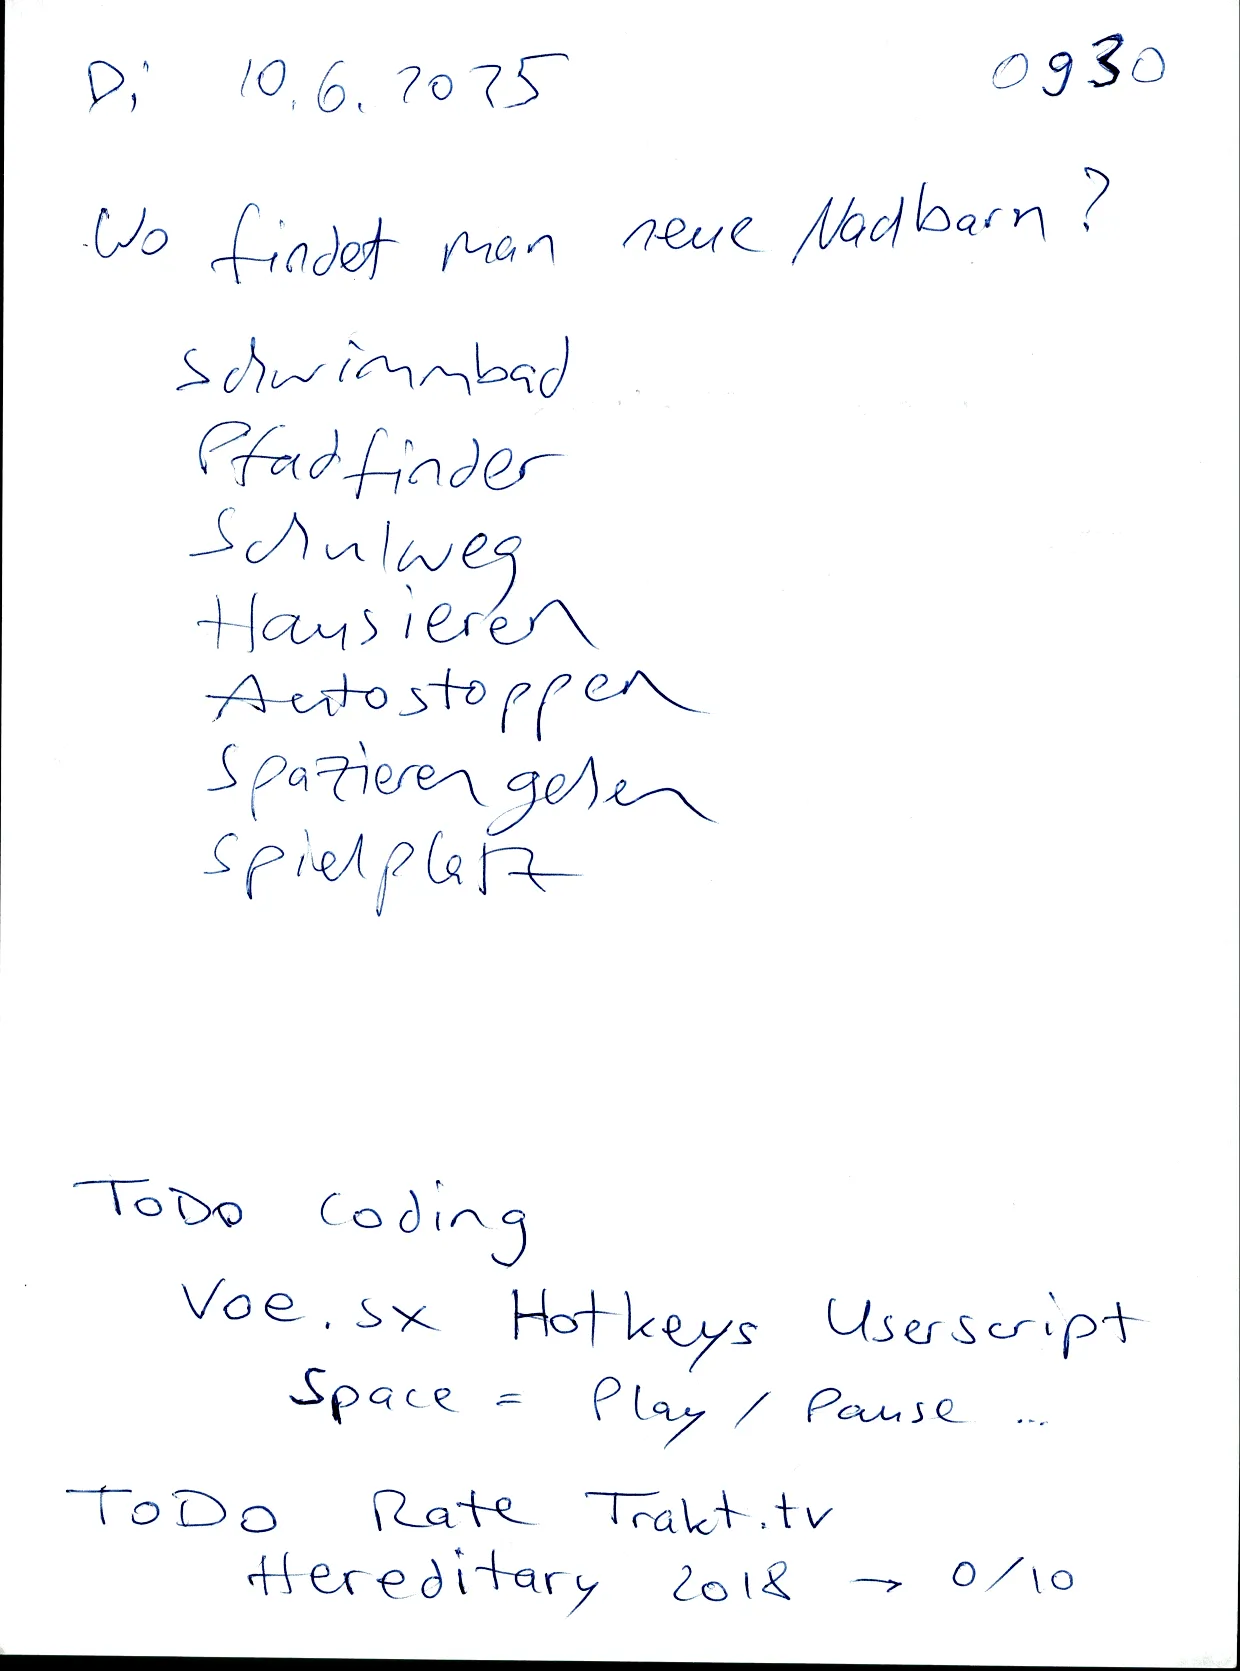 Di 10.6.2025 0930
Wo findet man neue Nachbarn?
Schwimmbad
Pfadfinder
Schulweg
Hausieren
Autostoppen
Spazieren gehen
Spielplatz
ToDo Coding
Voe.sx Hotkeys Userscript
Space = Play / Pause ...
ToDo Rate Trakt.tv
Hereditary 2018 → 0/10